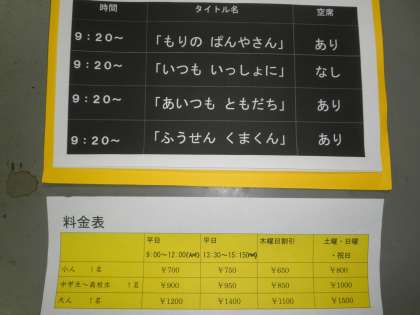 時間 タイトル名 空席
9:20～ 「もりの ぱんやさん」 あり
9:20～ 「いつも いっしょに」 なし
9:20～ 「あいつも ともだち」 あり
9:20～ 「ふうせん くまくん」 あり
料金表
平日 平日 木曜日割引 土曜・日曜
9:00～12:00(AM) 13:30～15:15(PM) ・祝日
小人 1名 ¥700 ¥750 ¥650 ¥800
中学生～高校生 1名 ¥900 ¥950 ¥850 ¥1000
大人 1名 ¥1200 ¥1400 ¥1100 ¥1500